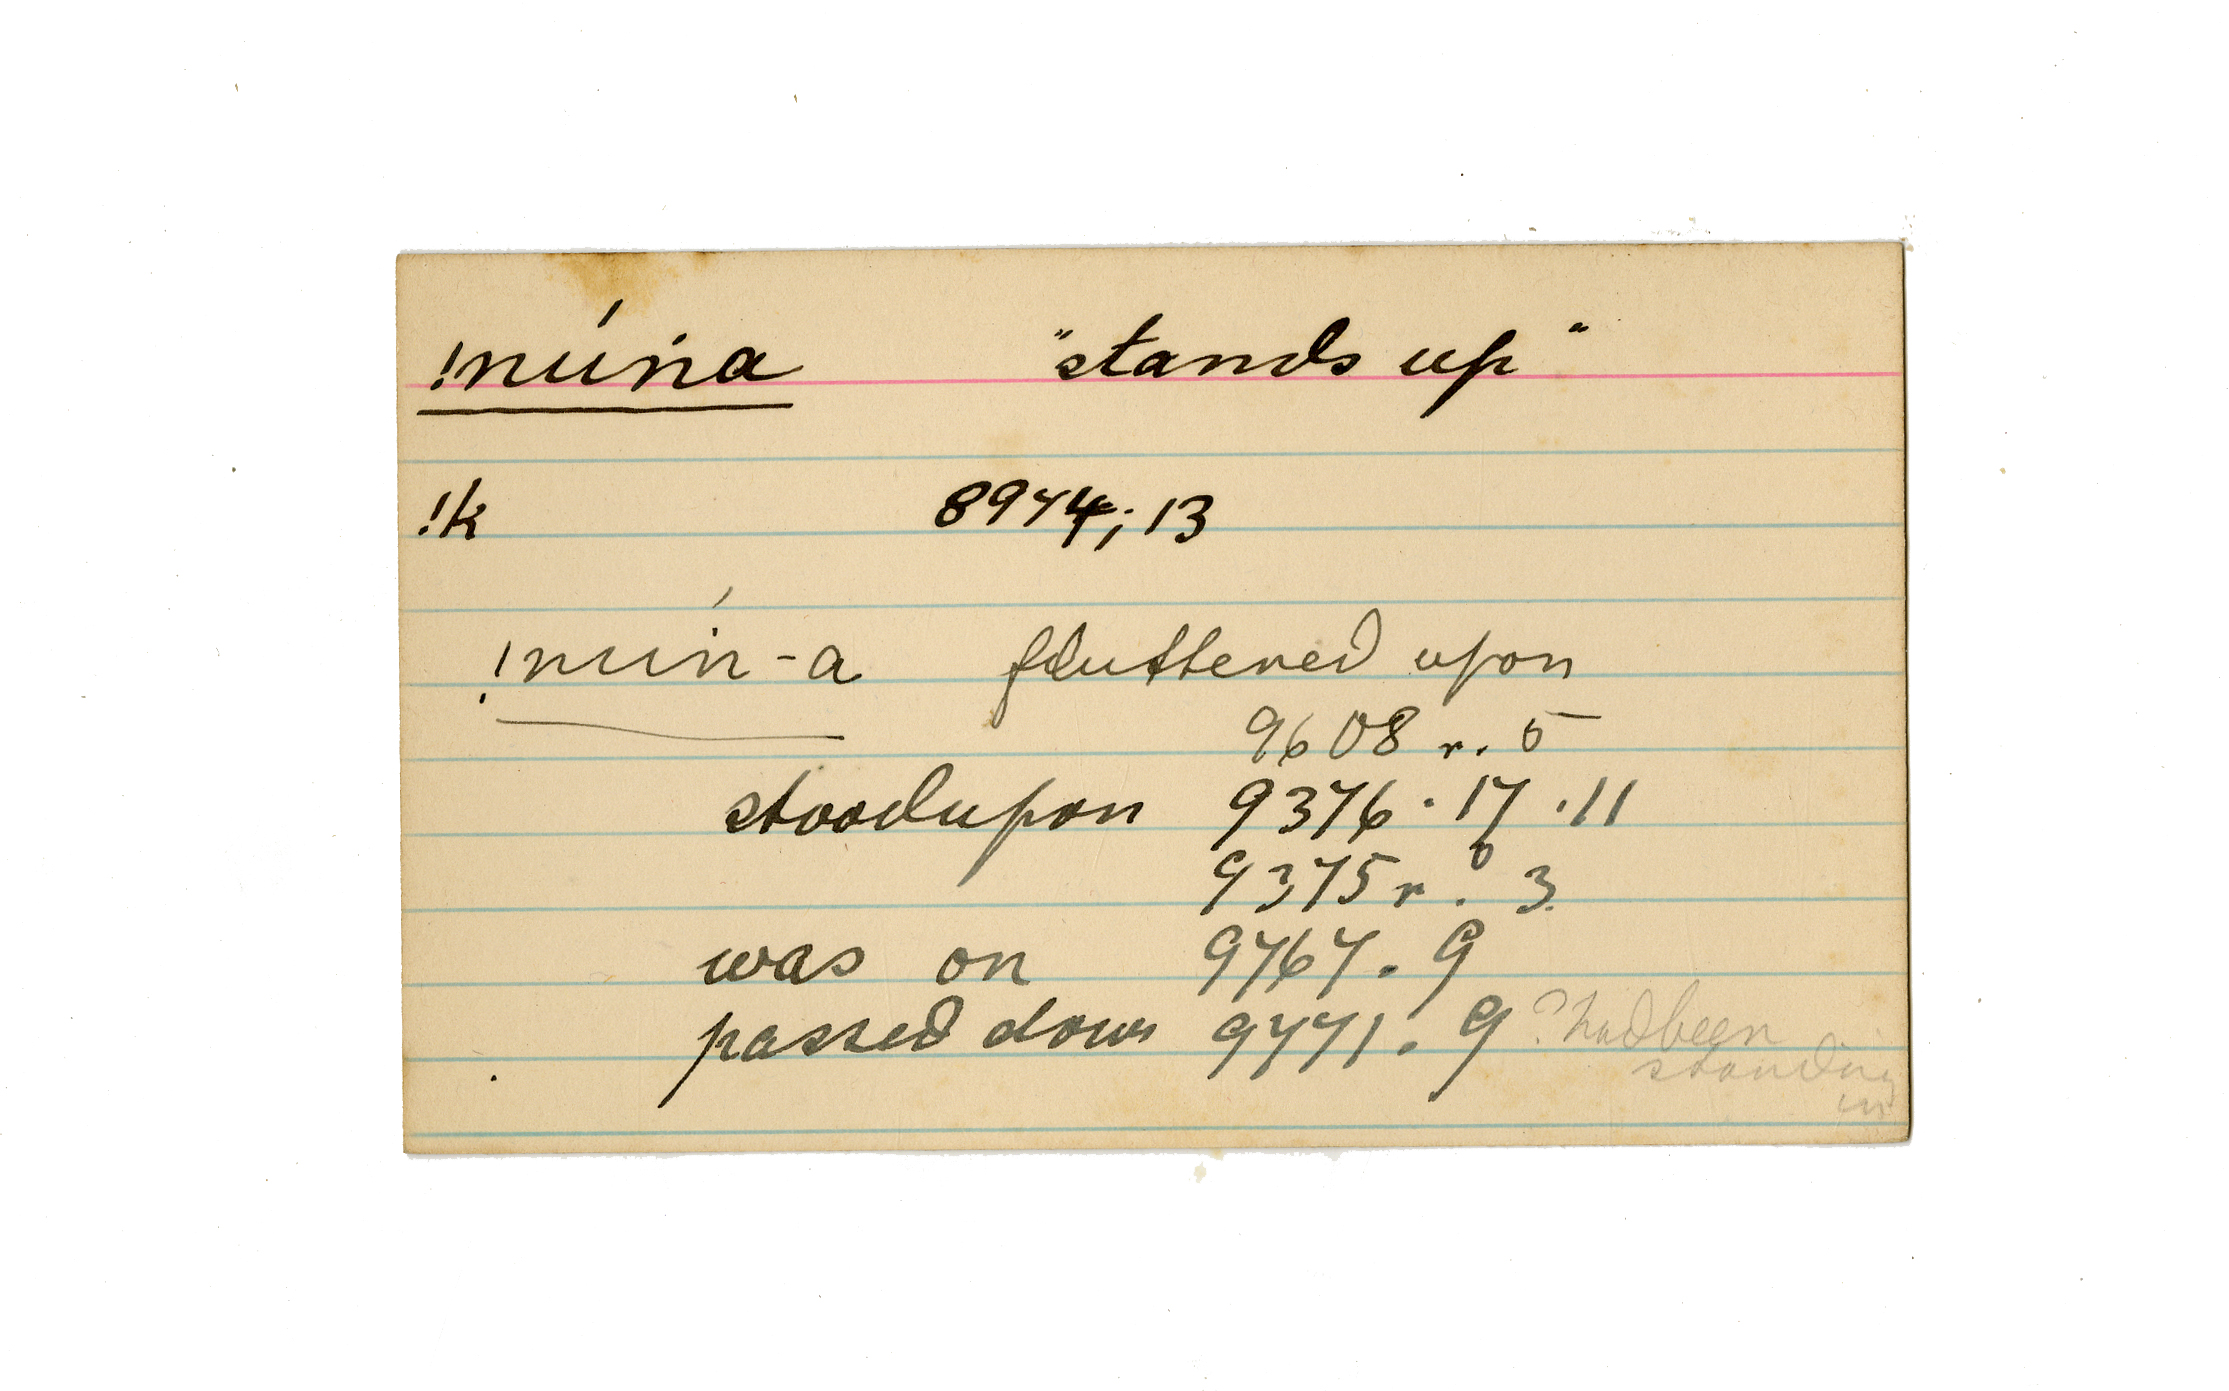 !núṅa "stands up"
!k 8974; 13
!núṅ-a fluttered upon
9608 r. 5
stood upon 9376 . 17 . 11
9375 r . 3.
was on 9767 . 9
passed down 9771 . 9 ? had been
standing